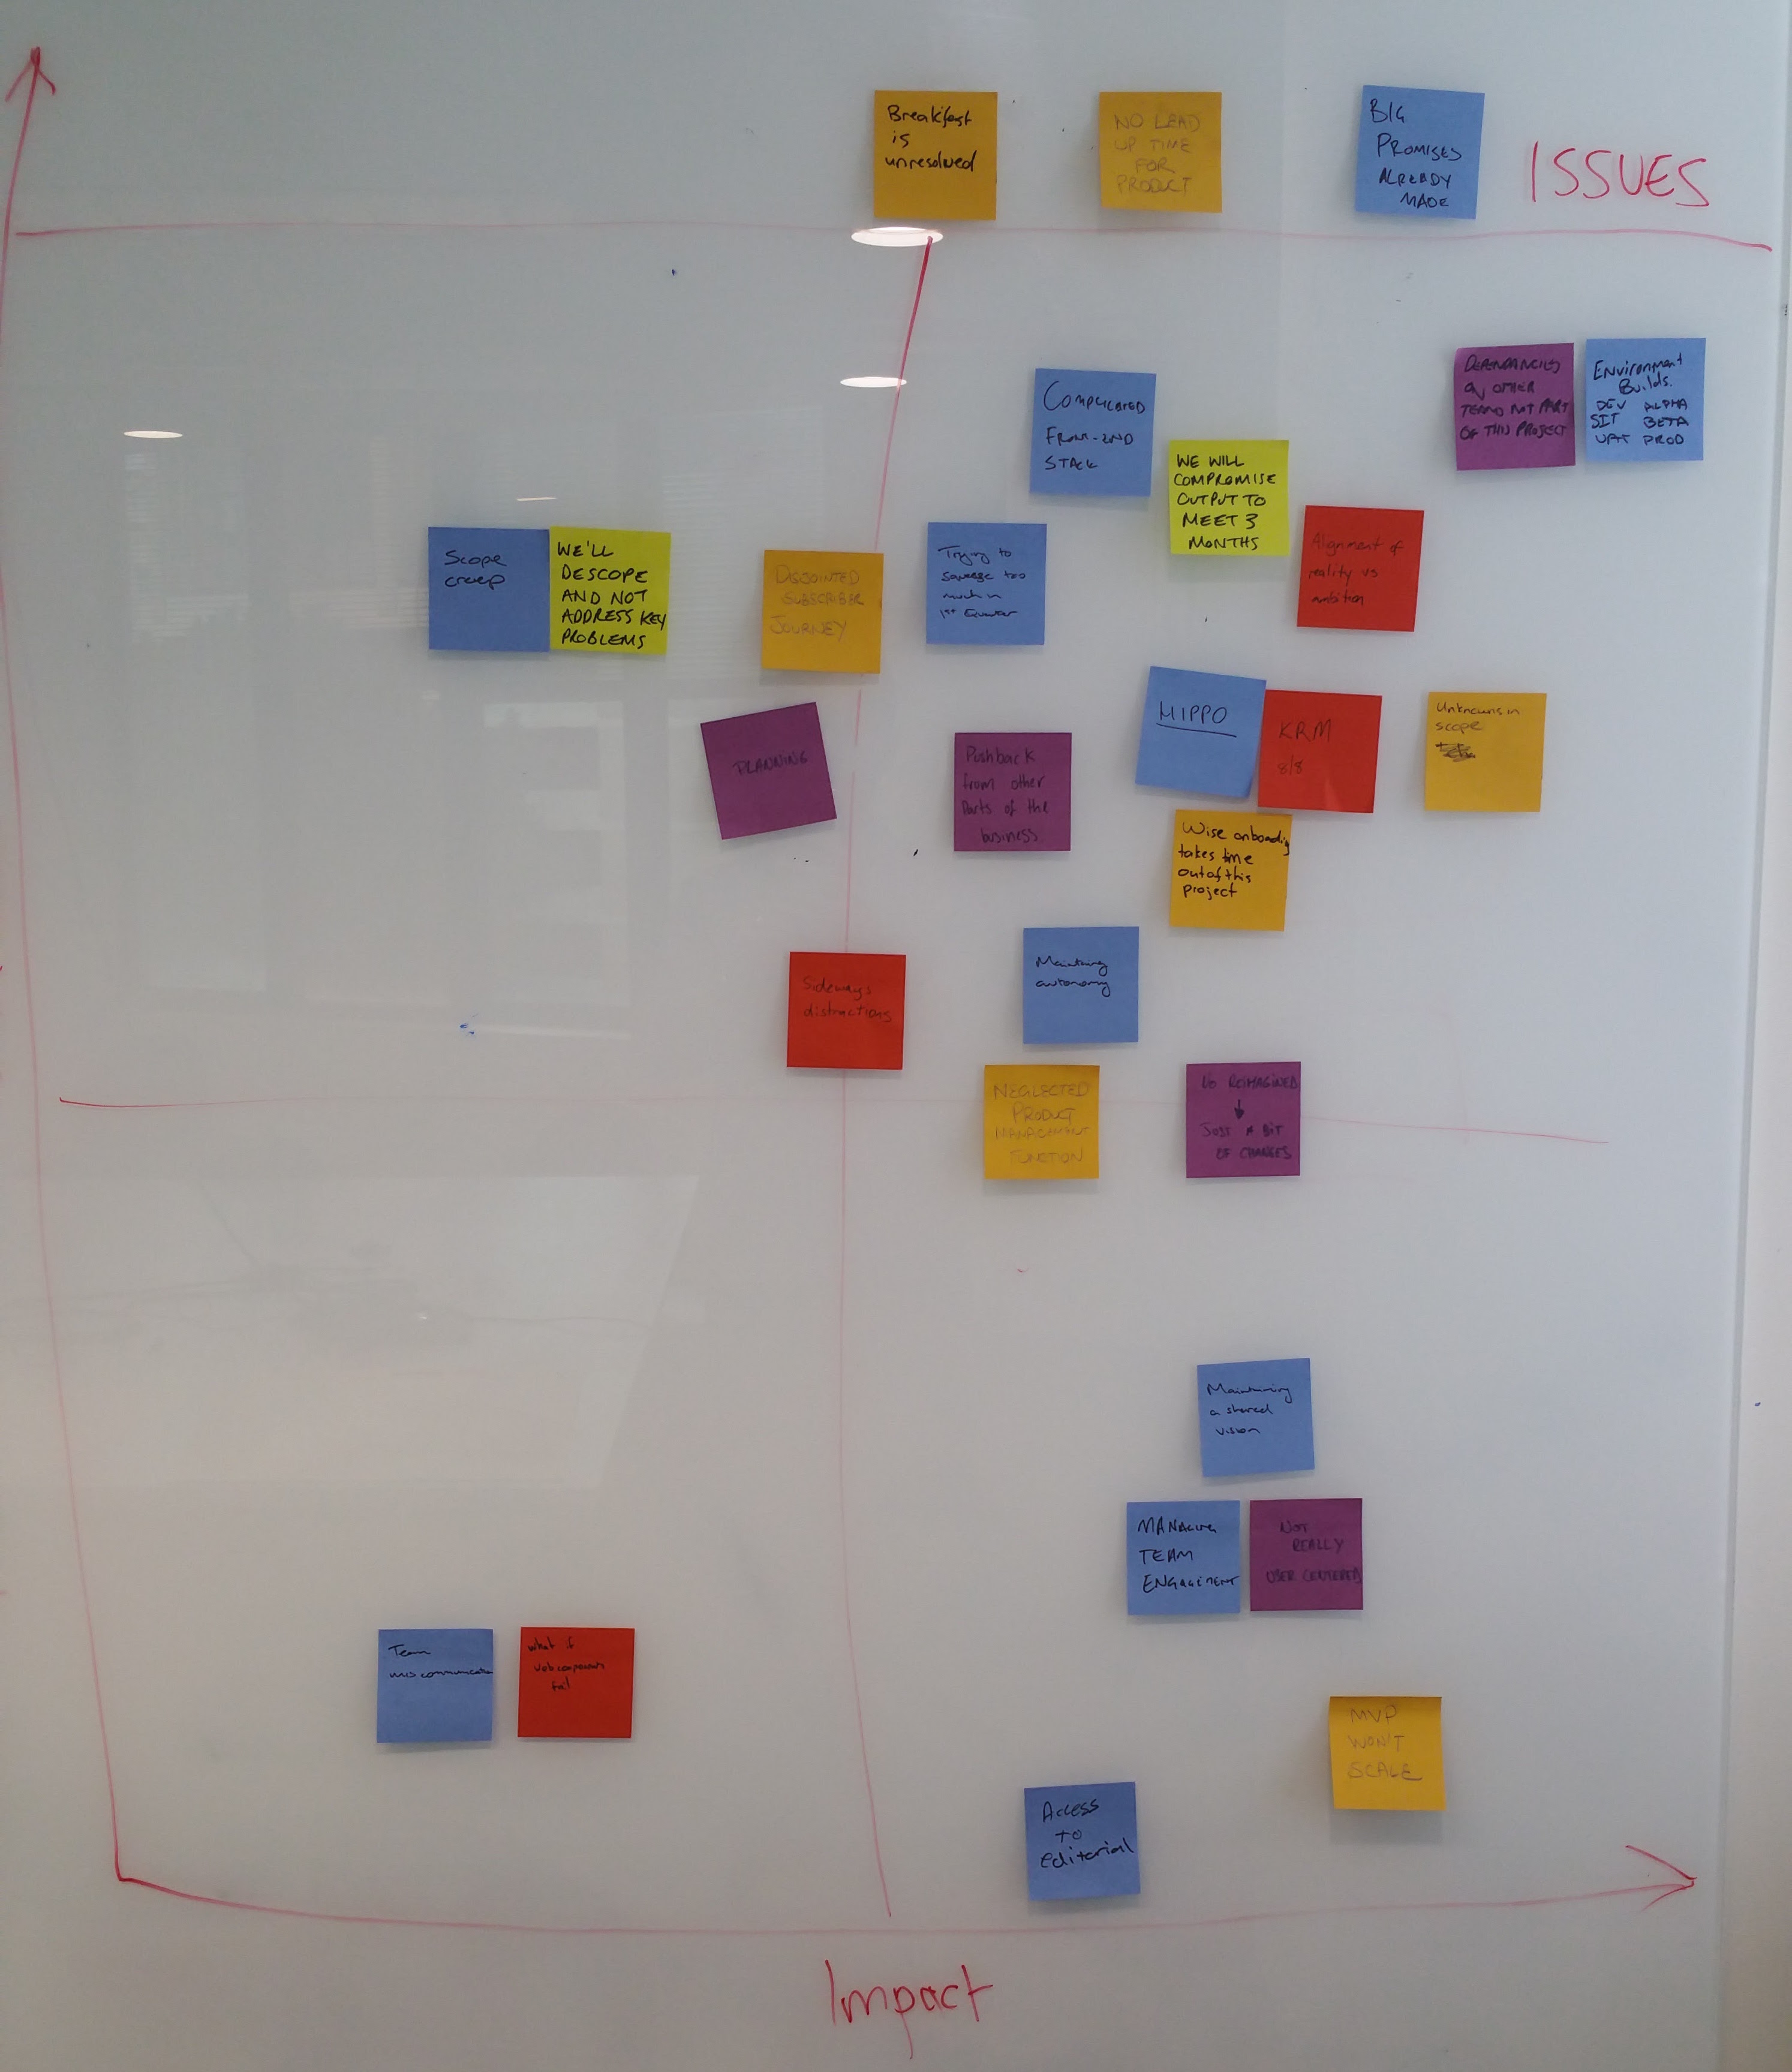 Breakfast
is
unresolved
NO LEAD
UP TIME
FOR
PRODUCT
BIG
PROMISES
ALREADY
MADE
ISSUES
COMPLICATED
STACK
DEPENDANCIES
ON OTHER
TEAMS NOT PART
OF THIS PROJECT
ENVironment
Builds.
DEV ALPHA
SIT BETA
UAT PROD
WE WILL
COMPROMISE
OUTPUT TO
MEET 3
MONTHS
Scope
creep
WE'LL
DESCOPE
AND NOT
ADDRESS KEY
PROBLEMS
DISJOINTED
SUBSCRIBER
JOURNEY
Trying to
squeeze too
much in
1st Quarter
Alignment of
reality vs
ambition
PLANNING
Pushback
from other
Parts of the
business
HIPPO
KRM
8/8
Unknowns in
scope
Wise onboarding
takes time
out of this
project
Sideways
distractions
Maintaining
autonomy
NEGLECTED
PRODUCT
MANAGEMENT
FUNCTION
NO REIMAGINED
JUST A BIT
OF CHANGES
Maintaining
a shared
vision
MANAGING
TEAM
ENGAGEMENT
NOT
REALLY
USER CENTERED
Team
miscommunication
what if
webcomponents
fail
MVP
WON'T
SCALE
Access
to
editorial
Impact